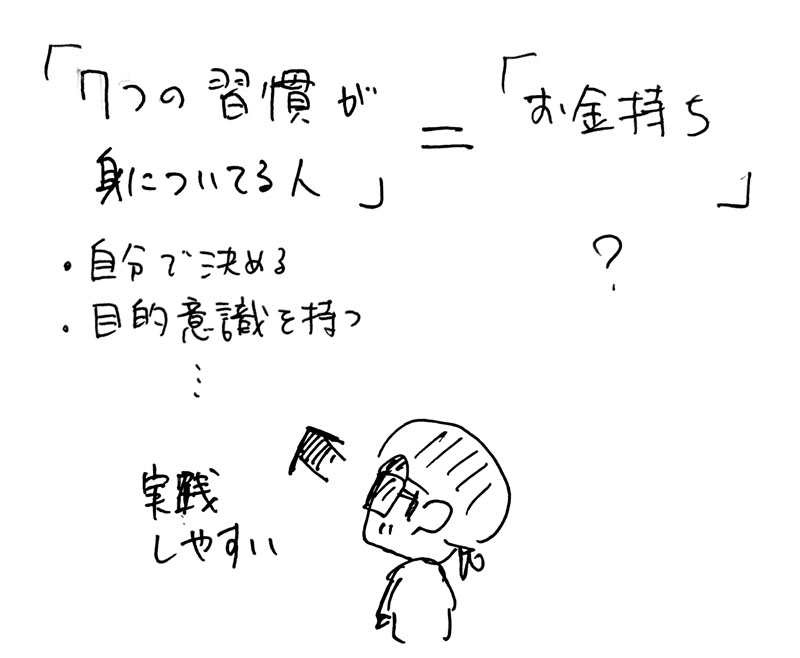 「7つの習慣が
身についてる人」
=
「お金持ち」
?
・自分で決める
・目的意識を持つ
⋮
実践
しやすい